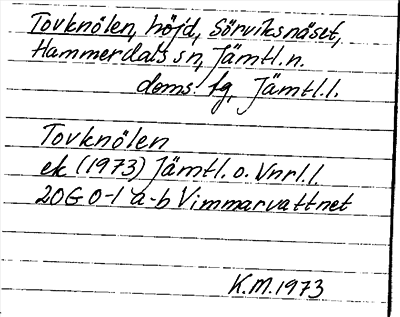 Tovknölen, höjd, Sörviksnäset,
Hammerdals sn, Jämtl.n.
doms fg, Jämtl.l.
Tovknölen
ek (1973) Jämtl. o. Vnrl.l.
20G 0-1 a-b Vimmarvattnet
K.M.1973